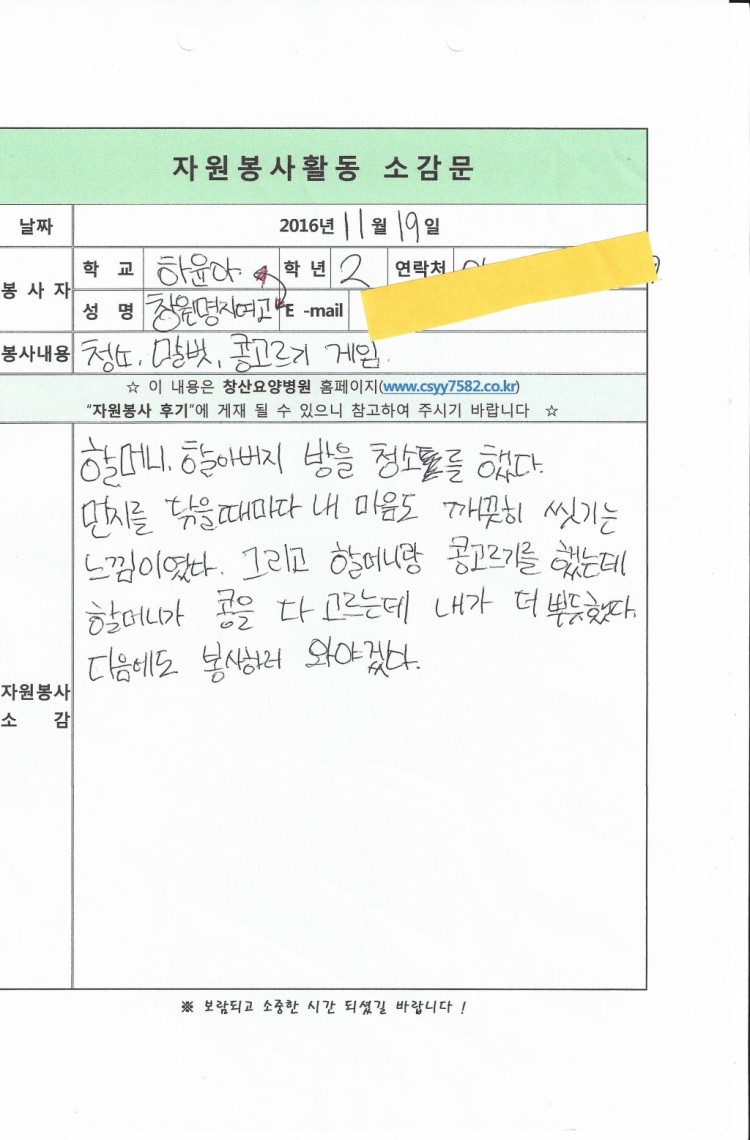 자원봉사활동 소감문
날짜 2016년 11월 19일
봉사자 학교 하윤아 학년 2 연락처
성명 창원명지여고 E -mail
봉사내용 청소, 말벗, 콩고르기 게임.
☆ 이 내용은 창산요양병원 홈페이지(www.csyy7582.co.kr)
“자원봉사 후기”에 게재 될 수 있으니 참고하여 주시기 바랍니다 ☆
할머니, 할아버지 방을 청소를 했다.
먼지를 닦을때마다 내 마음도 깨끗히 씻기는
느낌이였다. 그리고 할머니랑 콩고르기를 했는데
할머니가 콩을 다 고르는데 내가 더 뿌듯했다.
다음에도 봉사하러 와야겠다.
자원봉사
소감
※ 보람되고 소중한 시간 되셨길 바랍니다 !